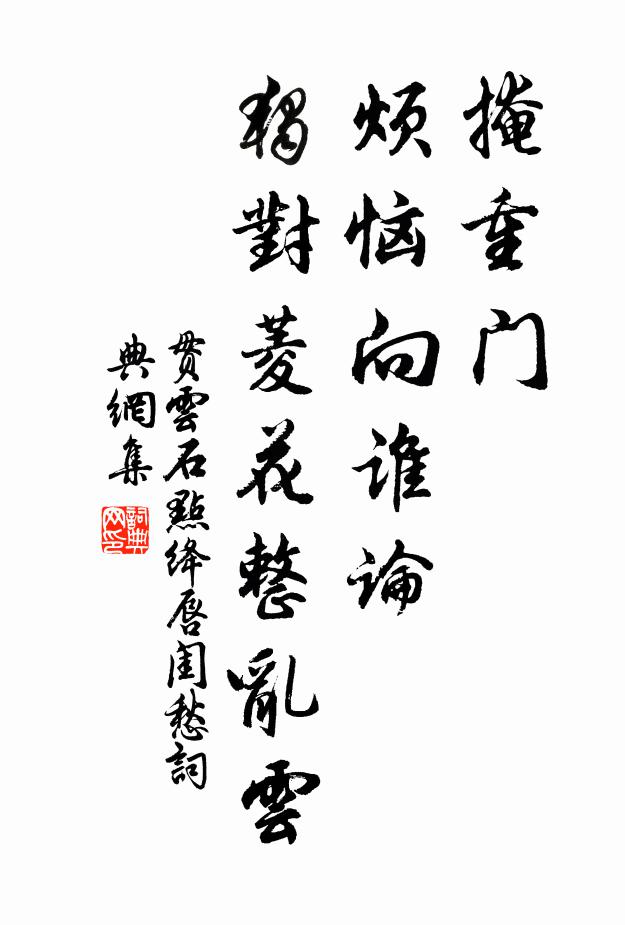 掩重门
烦恼向谁论
獨對菱花整亂雲
贯雲石點绛唇闺愁詞
典網集
詞典网印